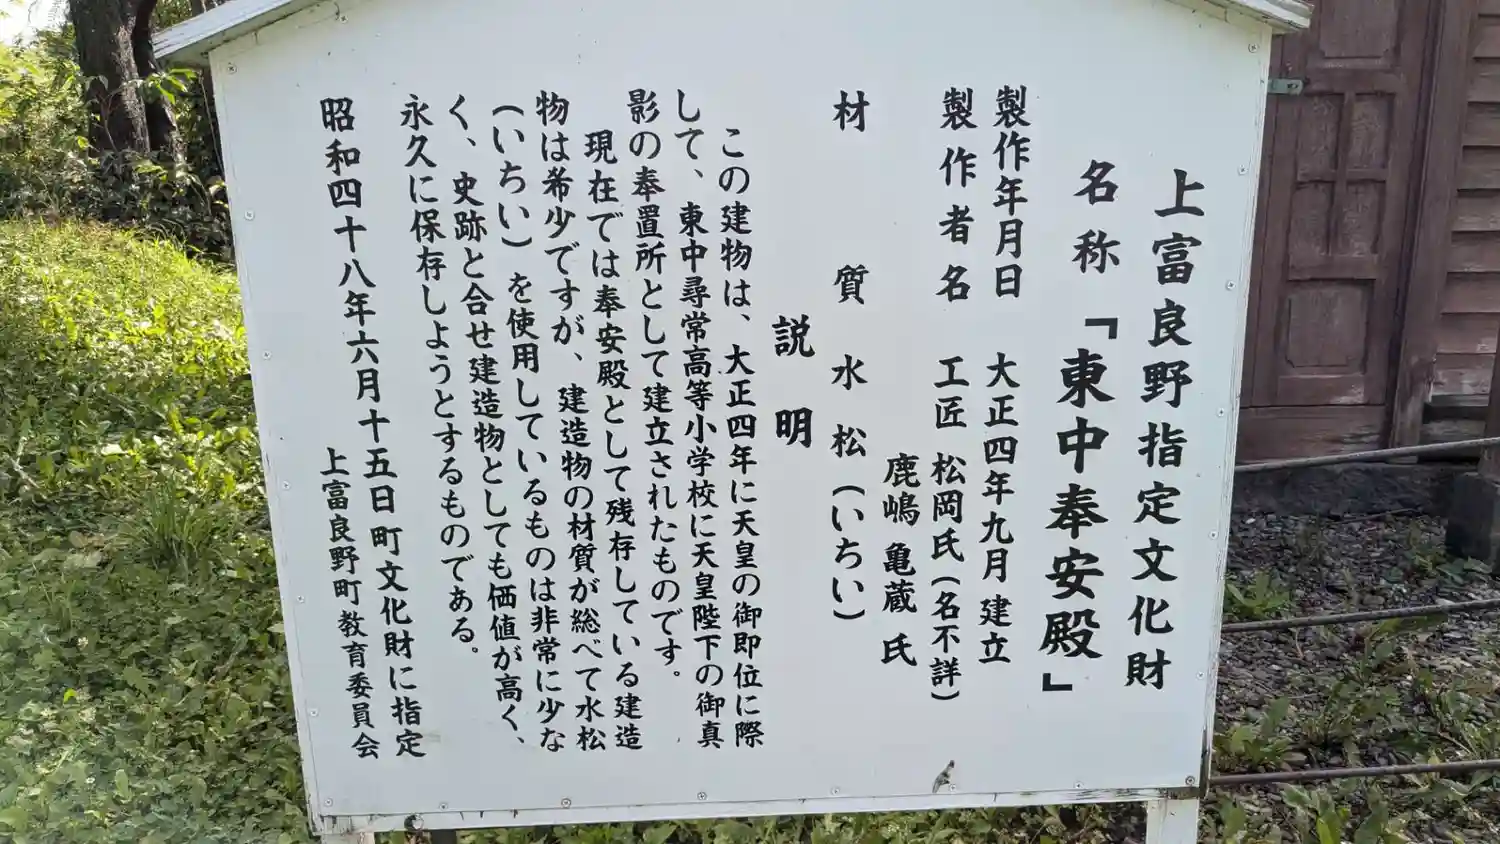 上富良野指定文化財
名称「東中奉安殿」
製作年月日 大正四年九月建立
製作者名 工匠 松岡氏(名不詳)
鹿嶋亀蔵氏
材質 水松(いちい)
説明
この建物は、大正四年に天皇の御即位に際
して、東中尋常高等小学校に天皇陛下の御真
影の奉置所として建立されたものです。
現在では奉安殿として残存している建造
物は希少ですが、建造物の材質が総べて水松
(いちい)を使用しているものは非常に少な
く、史跡と合せ建造物としても価値が高く、
永久に保存しようとするものである。
昭和四十八年六月十五日町文化財に指定
上富良野町教育委員会